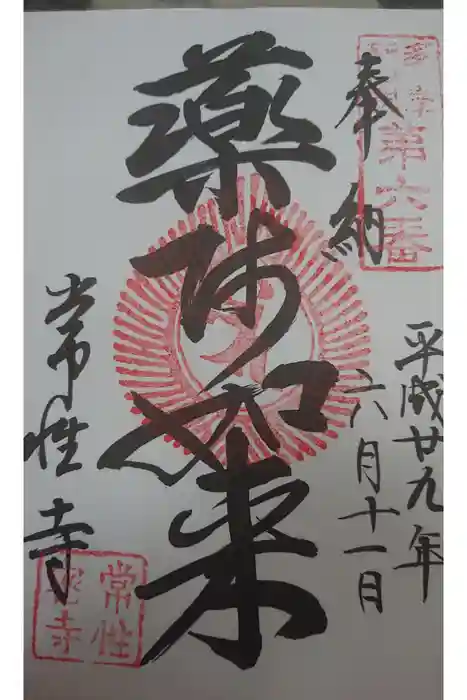 奉納
第六番
平成廿九年
六月十一日
薬师如来
常性寺
常性
寺